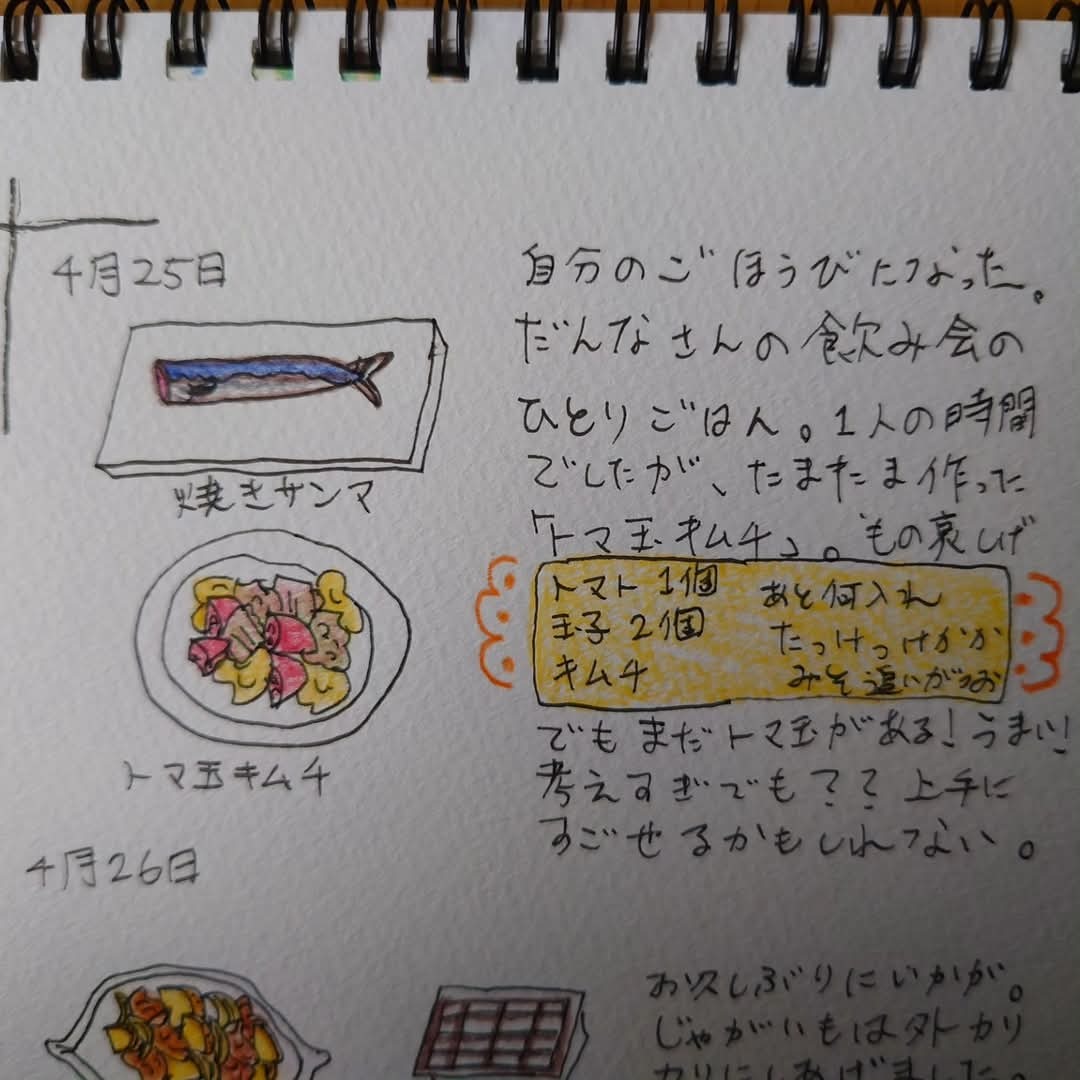 4月25日
焼きサンマ
トマ玉キムチ
自分のごほうびになった。
だんなさんの飲み会の
ひとりごはん。1人の時間
でしたが、たまたま作った
「トマ玉キムチ」。もの哀しげ
トマト 1個
玉子 2個
キムチ
あと何入れ
たっけっけかか
みそ追いがつお
でもまだトマ玉がある!うまい!
考えすぎでも??上手に
すごせるかもしれない。
4月26日
お久しぶりにいかが。
じゃがいもは外カリ
カリにしあげました。